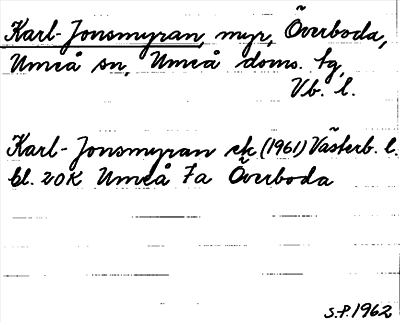 Karl-Jonsmyran, myr, Överboda,
Umeå sn, Umeå doms. tg,
Vb. l.
Karl-Jonsmyran ek (1961) Västerb. l.
bl. 20K Umeå 7a Överboda
S.P. 1962